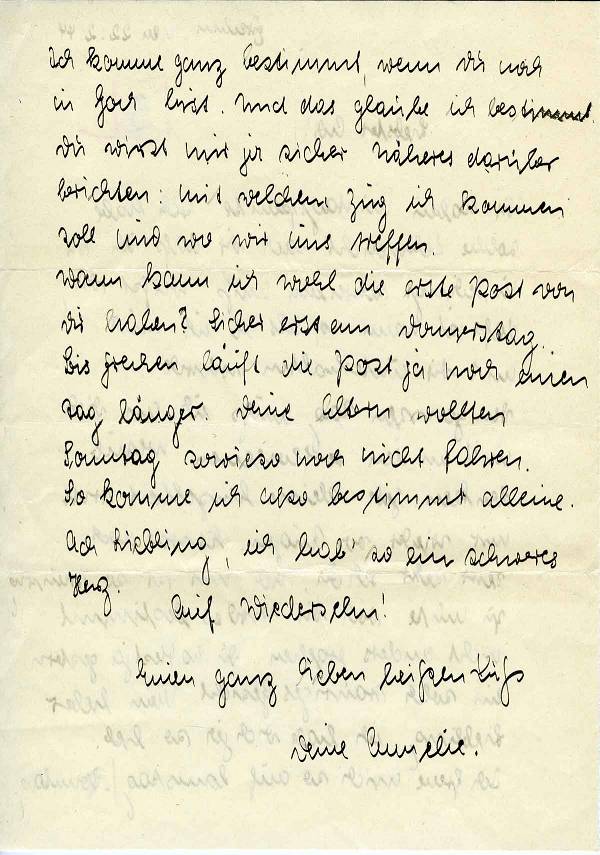 Ich komme ganz bestimmt, wenn du noch
in Goch bist. Und das glaube ich bestimmt.
Du wirst mir ja sicher Näheres darüber
berichten: mit welchem Zug ich kommen
soll und wo wir uns treffen.
Wann kann ich wohl die erste Post von
dir haben? Sicher erst am Donnerstag.
Bis läuft die Post ja noch einen
Tag länger. Deine Eltern wollten
Sonntag sowieso noch nicht fahren.
So komme ich also bestimmt alleine.
Ach Liebling, ich hab' so ein schweres
Herz. Auf Wiedersehn!
Einen ganz lieben heißen Kuß
Deine